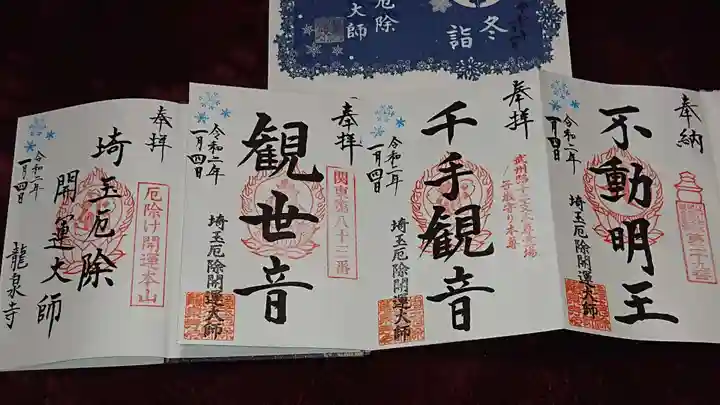 冬
詣
厄除
大師
奉納
不動明王
令和二年
一月四日
埼玉厄除開運大師
奉拝
千手観音
令和二年
一月四日
埼玉厄除開運大師
奉拝
観世音
令和二年
一月四日
関東第八十二番
埼玉厄除開運大師
奉拝
埼玉厄除
開運大師
令和二年
一月四日
厄除け開運本山
龍泉寺